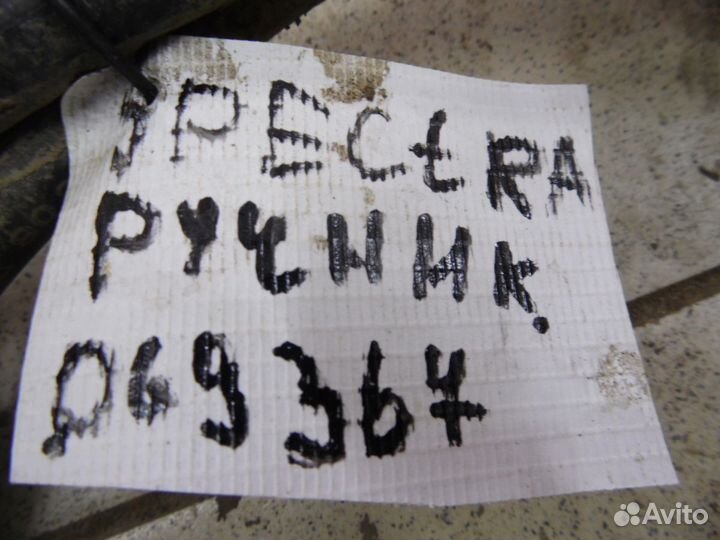 SPECtRA
РУЧНИК.
069367
Avito